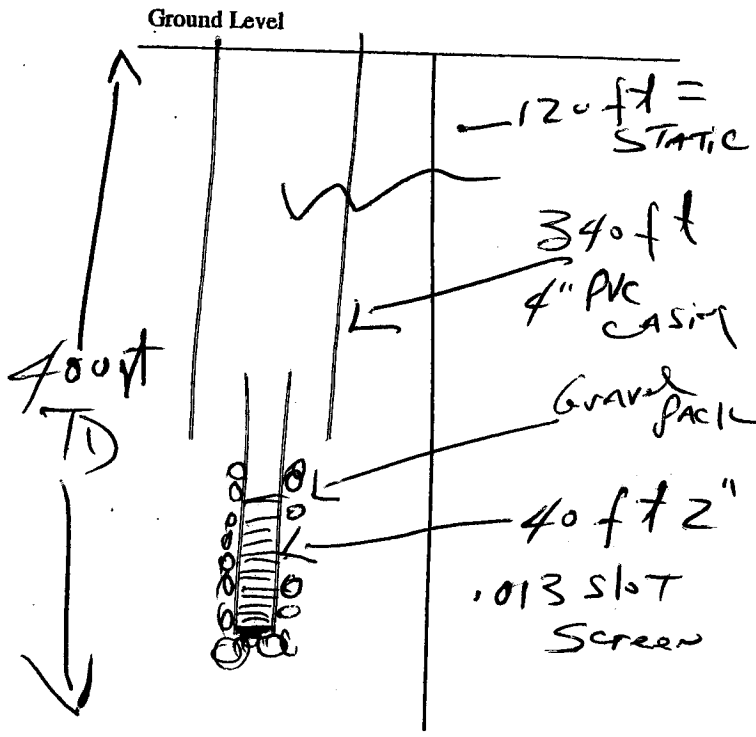 Ground Level
120 ft =
STATIC
340 ft
4" PVC
CASING
Gravel
PACK
40 ft 2"
.013 SloT
Screen
400 ft
TD